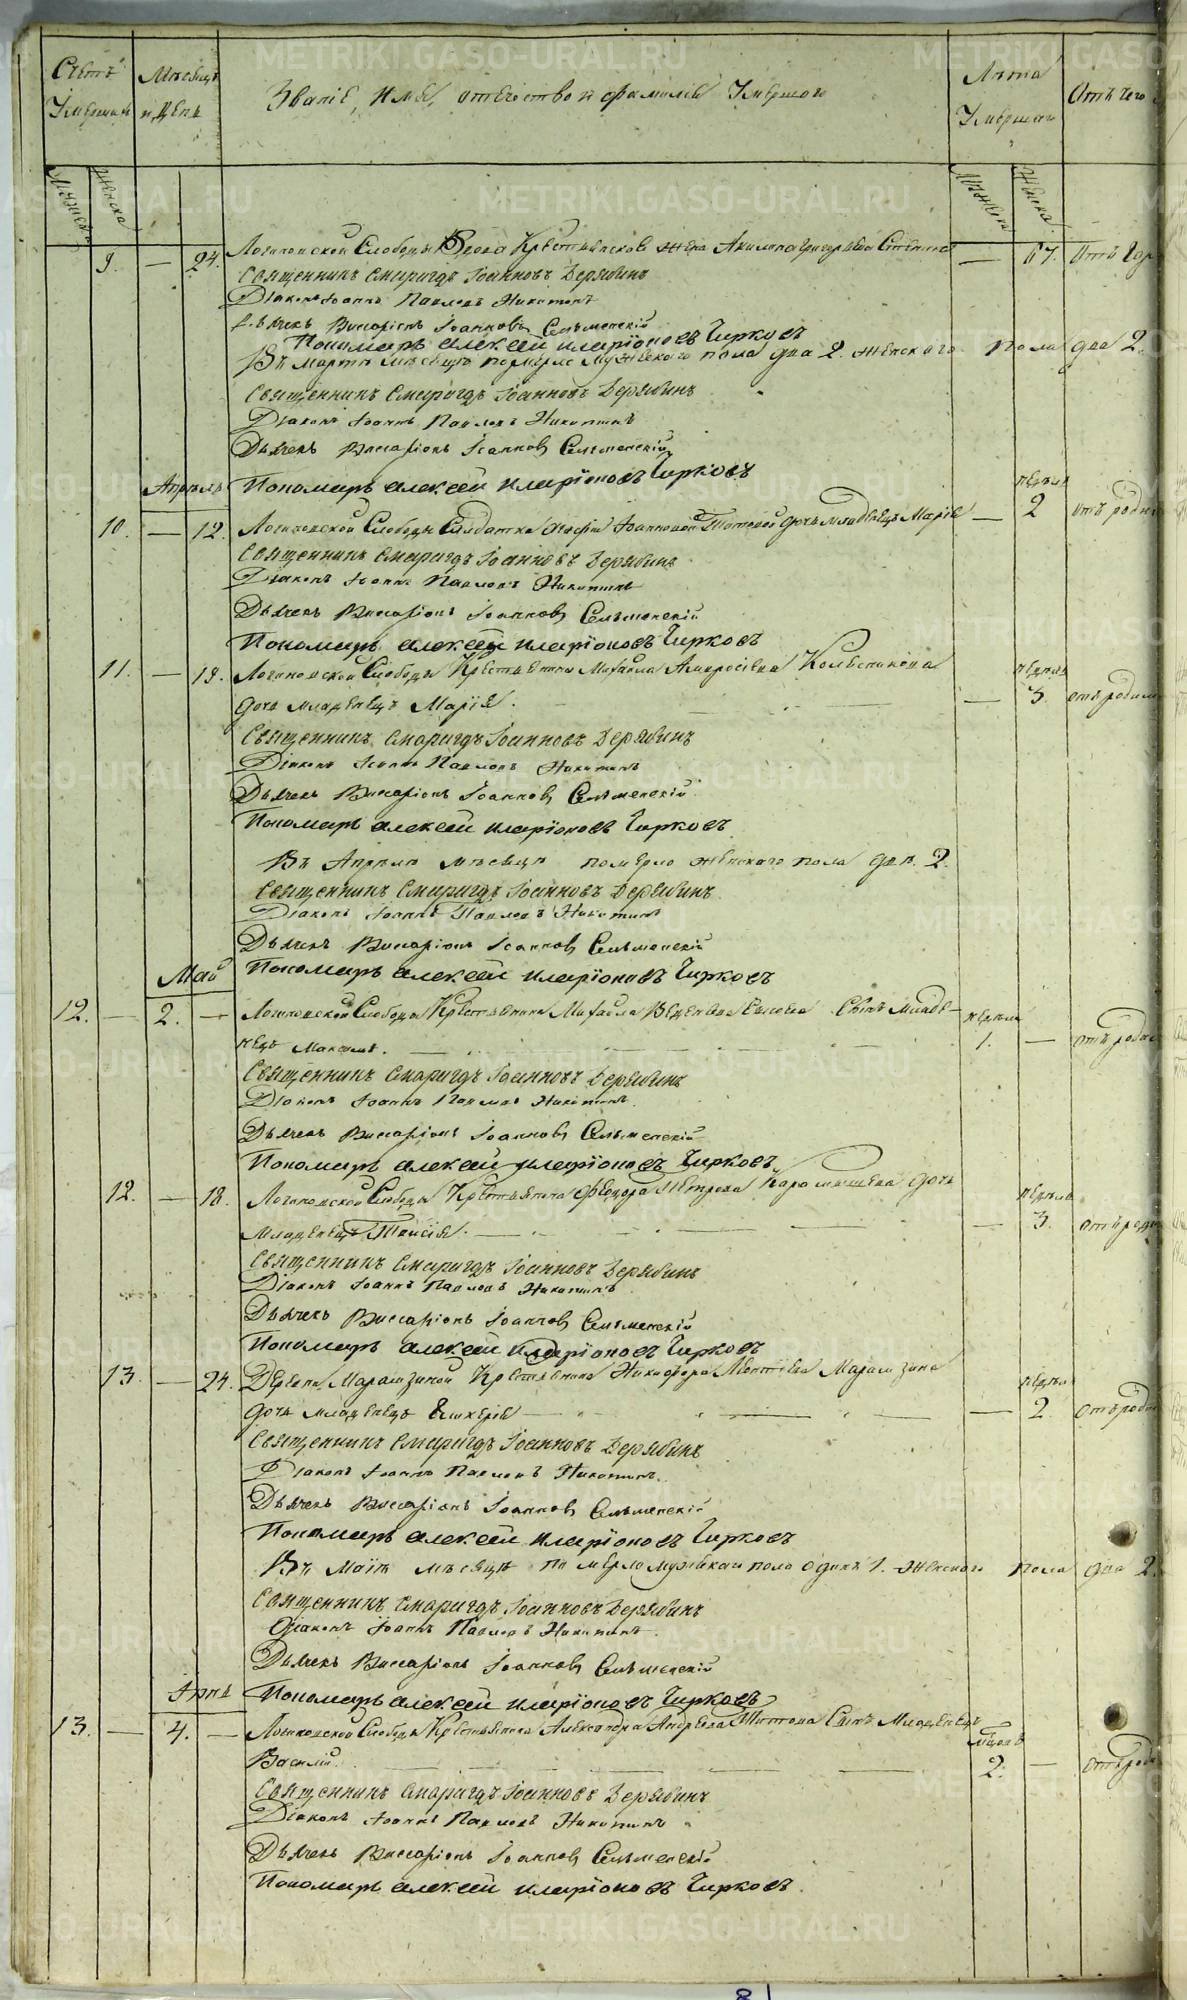 Счетъ Умершихъ
Мѣсяцъ и День
Званіе, имя, отчество и фамилія Умершаго
Лѣта Умершаго
Отъ чего
Мужска Женска
Мужска Женска
9. — 24. Логиновской Слободы Крестьянская жена Акилина Григорьева — 67. Отъ Гор
Священникъ Смарагдъ Іоанновъ Дерябинъ
Діаконъ Іоаннъ Павловъ Никитинъ
Дьячекъ Виссаріонъ Іоанновъ Селѣменскій
Пономарь Алексѣй Иларіоновъ Чирковъ
Въ Мартѣ мѣсяцѣ померло Мужескаго пола два 2. женскаго пола два 2.
Священникъ Смарагдъ Іоанновъ Дерябинъ
Діаконъ Іоаннъ Павловъ Никитинъ
Дьячекъ Виссаріонъ Іоанновъ Селѣменскій
Апрѣль Пономарь Алексѣй Иларіоновъ Чирковъ
10. — 12. Логиновской Слободы Солдатки Іоанновой Титовой дочь младенецъ Марія — недѣли 2 отъ родим
Священникъ Смарагдъ Іоанновъ Дерябинъ
Діаконъ Іоаннъ Павловъ Никитинъ
Дьячекъ Виссаріонъ Іоанновъ Селѣменскій
Пономарь Алексѣй Иларіоновъ Чирковъ
11. — 19. Логиновской Слободы Крестьянина Михаила Амвросіева Колесникова
дочь младенецъ Марія. — недѣли 3 отъ родим
Священникъ Смарагдъ Іоанновъ Дерябинъ
Діаконъ Іоаннъ Павловъ Никитинъ
Дьячекъ Виссаріонъ Іоанновъ Селѣменскій
Пономарь Алексѣй Иларіоновъ Чирковъ
Въ Апрѣлѣ мѣсяцѣ померло женскаго пола два. 2.
Священникъ Смарагдъ Іоанновъ Дерябинъ
Діаконъ Іоаннъ Павловъ Никитинъ
Дьячекъ Виссаріонъ Іоанновъ Селѣменскій
Май Пономарь Алексѣй Иларіоновъ Чирковъ
12. — 2. — Логиновской Слободы Крестьянина Михаила Сынъ младе-
нецъ Максимъ. недѣля 1. — отъ родим
Священникъ Смарагдъ Іоанновъ Дерябинъ
Діаконъ Іоаннъ Павловъ Никитинъ
Дьячекъ Виссаріонъ Іоанновъ Селѣменскій
Пономарь Алексѣй Иларіоновъ Чирковъ
12. — 18. Логиновской Слободы Крестьянина Ѳеодора Петрова Карамышева дочь
Младенецъ Таисія. — недѣли 3. отъ роди
Священникъ Смарагдъ Іоанновъ Дерябинъ
Діаконъ Іоаннъ Павловъ Никитинъ
Дьячекъ Виссаріонъ Іоанновъ Селѣменскій
Пономарь Алексѣй Иларіоновъ Чирковъ
13. — 24. Деревни Марамзиной Крестьянина Никифора Леонтіева Марамзина
дочь младенецъ Гликерія — недѣли 2 отъ роди
Священникъ Смарагдъ Іоанновъ Дерябинъ
Діаконъ Іоаннъ Павловъ Никитинъ.
Дьячекъ Виссаріонъ Іоанновъ Селѣменскій
Пономарь Алексѣй Иларіоновъ Чирковъ
Въ Маіѣ мѣсяцѣ померло мужѣскаго пола одинъ 1. женскаго пола два 2.
Священникъ Смарагдъ Іоанновъ Дерябинъ
Діаконъ Іоаннъ Павловъ Никитинъ.
Дьячекъ Виссаріонъ Іоанновъ Селѣменскій
Іюнь Пономарь Алексѣй Иларіоновъ Чирковъ
13. — 4. — Логиновской Слободы Крестьянина Александра Андреева Титова Сынъ Младенецъ
Василій. мѣсяца 2. — отъ роди
Священникъ Смарагдъ Іоанновъ Дерябинъ
Діаконъ Іоаннъ Павловъ Никитинъ
Дьячекъ Виссаріонъ Іоанновъ Селѣменскій
Пономарь Алексѣй Иларіоновъ Чирковъ.
METRIKI.GASO-URAL.RU